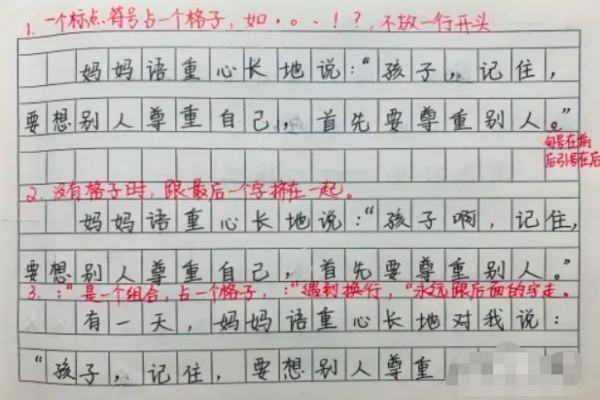 1. 一个标点符号占一个格子，如，。、！？，不放一行开头
妈妈语重心长地说：“孩子，记住，
要想别人尊重自己，首先要尊重别人。”
句号在前
后引号在后
2. 没有格子时，跟最后一个字挤在一起。
妈妈语重心长地说：“孩子啊，记住，
要想别人尊重自己，首先要尊重别人。”
3. ：“是一个组合，占一个格子，：“遇到换行，“永远跟后面的字走。
有一天，妈妈语重心长地对我说：
“孩子，记住，要想别人尊重